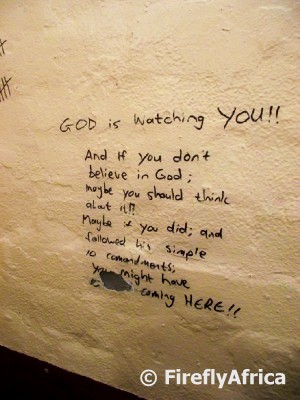 GOD is watching YOU!!
And If you don't
believe in God;
maybe you should think
about it!!
Maybe if you did; and
followed his simple
10 comandments;
you might have
coming HERE!!
© FireflyAfrica